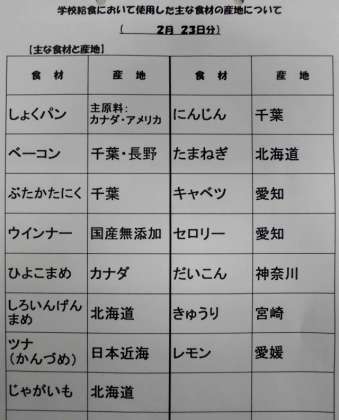 学校給食において使用した主な食材の産地について
（　　2月　23日分）
【主な食材と産地】
食　材　産　地　食　材　産　地
しょくパン　主原料：　にんじん　千葉
カナダ・アメリカ
ベーコン　千葉・長野　たまねぎ　北海道
ぶたかたにく　千葉　キャベツ　愛知
ウインナー　国産無添加　セロリー　愛知
ひよこまめ　カナダ　だいこん　神奈川
しろいんげん　北海道　きゅうり　宮崎
まめ
ツナ　日本近海　レモン　愛媛
（かんづめ）
じゃがいも　北海道